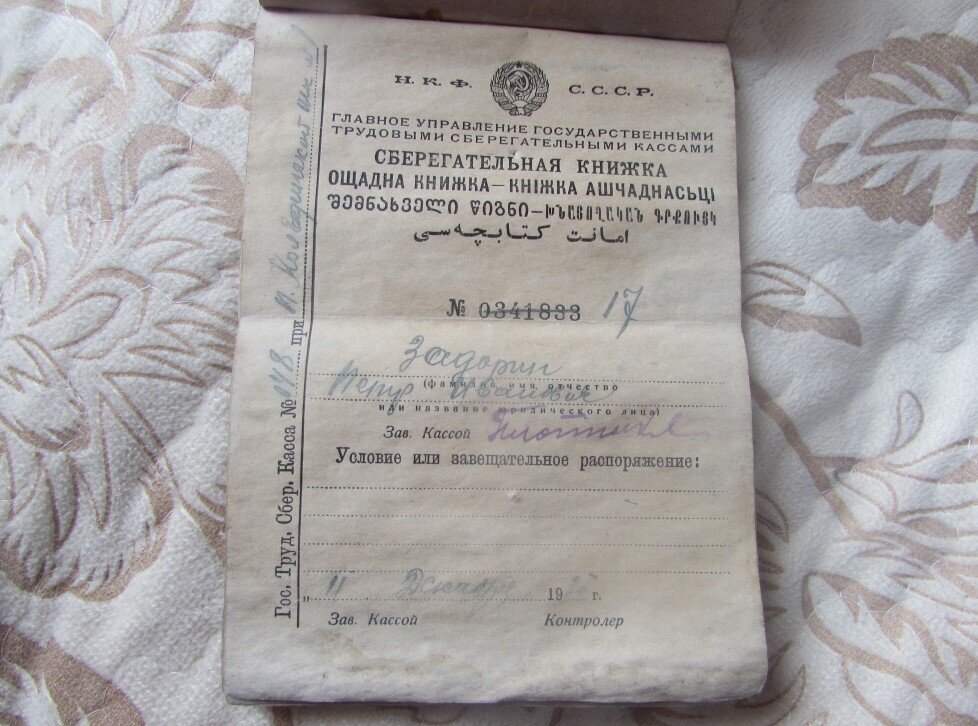 Н. К. Ф. С. С. С. Р.
ГЛАВНОЕ УПРАВЛЕНИЕ ГОСУДАРСТВЕННЫМИ
ТРУДОВЫМИ СБЕРЕГАТЕЛЬНЫМИ КАССАМИ
СБЕРЕГАТЕЛЬНАЯ КНИЖКА
ОЩАДНА КНИЖКА—КНІЖКА АШЧАДНАСЬЦІ
ᲨᲔᲛᲜᲐᲮᲕᲔᲚᲘ ᲬᲘᲒᲜᲘ—ԽՆԱՅՈՂԱԿԱՆ ԳՐՔՈՒՅԿ
امانت كتابچه‌سی
№ 0341833 17
Задорин
(фамилия, имя, отчество
Петр Иванович
или название юридического лица)
Зав. Кассой
Условие или завещательное распоряжение:
„ 11 Декабря 19 г.
Зав. Кассой Контролер
Гос. Труд. Сбер. Касса № 148 при п.